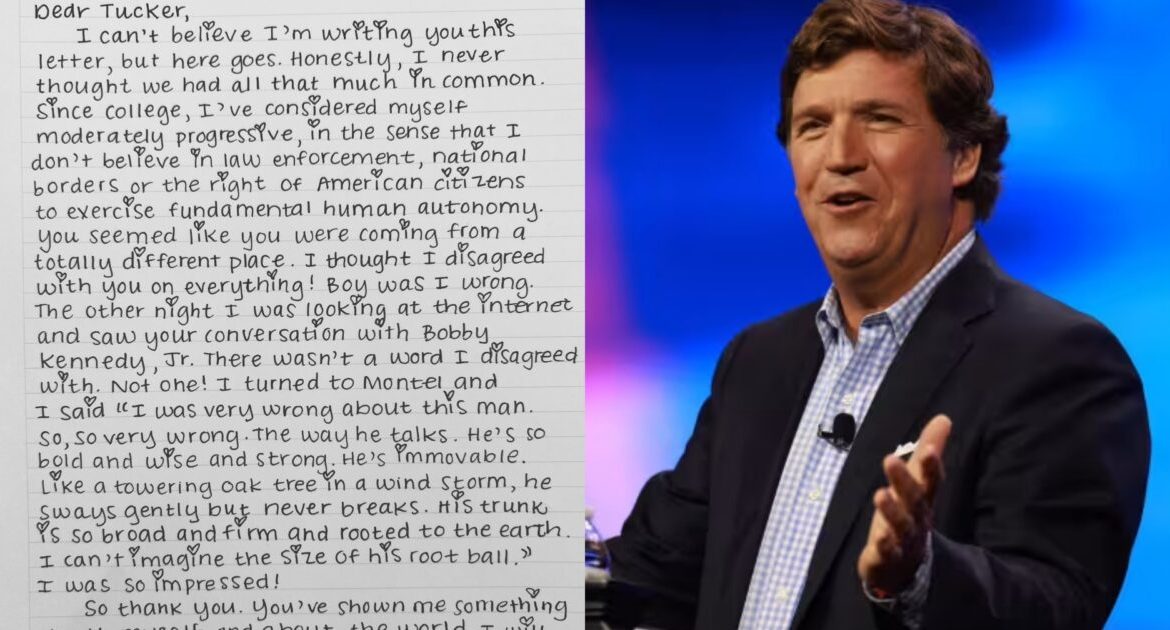 Dear Tucker,
I can't believe I'm writing you this
letter, but here goes. Honestly, I never
thought we had all that much in common.
Since college, I've considered myself
moderately progressive, in the sense that I
don't believe in law enforcement, national
borders or the right of American citizens
to exercise fundamental human autonomy.
You seemed like you were coming from a
totally different place. I thought I disagreed
with you on everything! Boy was I wrong.
The other night I was looking at the internet
and saw your conversation with Bobby
Kennedy, Jr. There wasn't a word I disagreed
with. Not one! I turned to Montel and
I said "I was very wrong about this man.
So, so very wrong. The way he talks. He's so
bold and wise and strong. He's immovable.
Like a towering oak tree in a wind storm, he
sways gently but never breaks. His trunk
is so broad and firm and rooted to the earth.
I can't imagine the size of his root ball."
I was so impressed!
So thank you. You've shown me something
and about the world. I